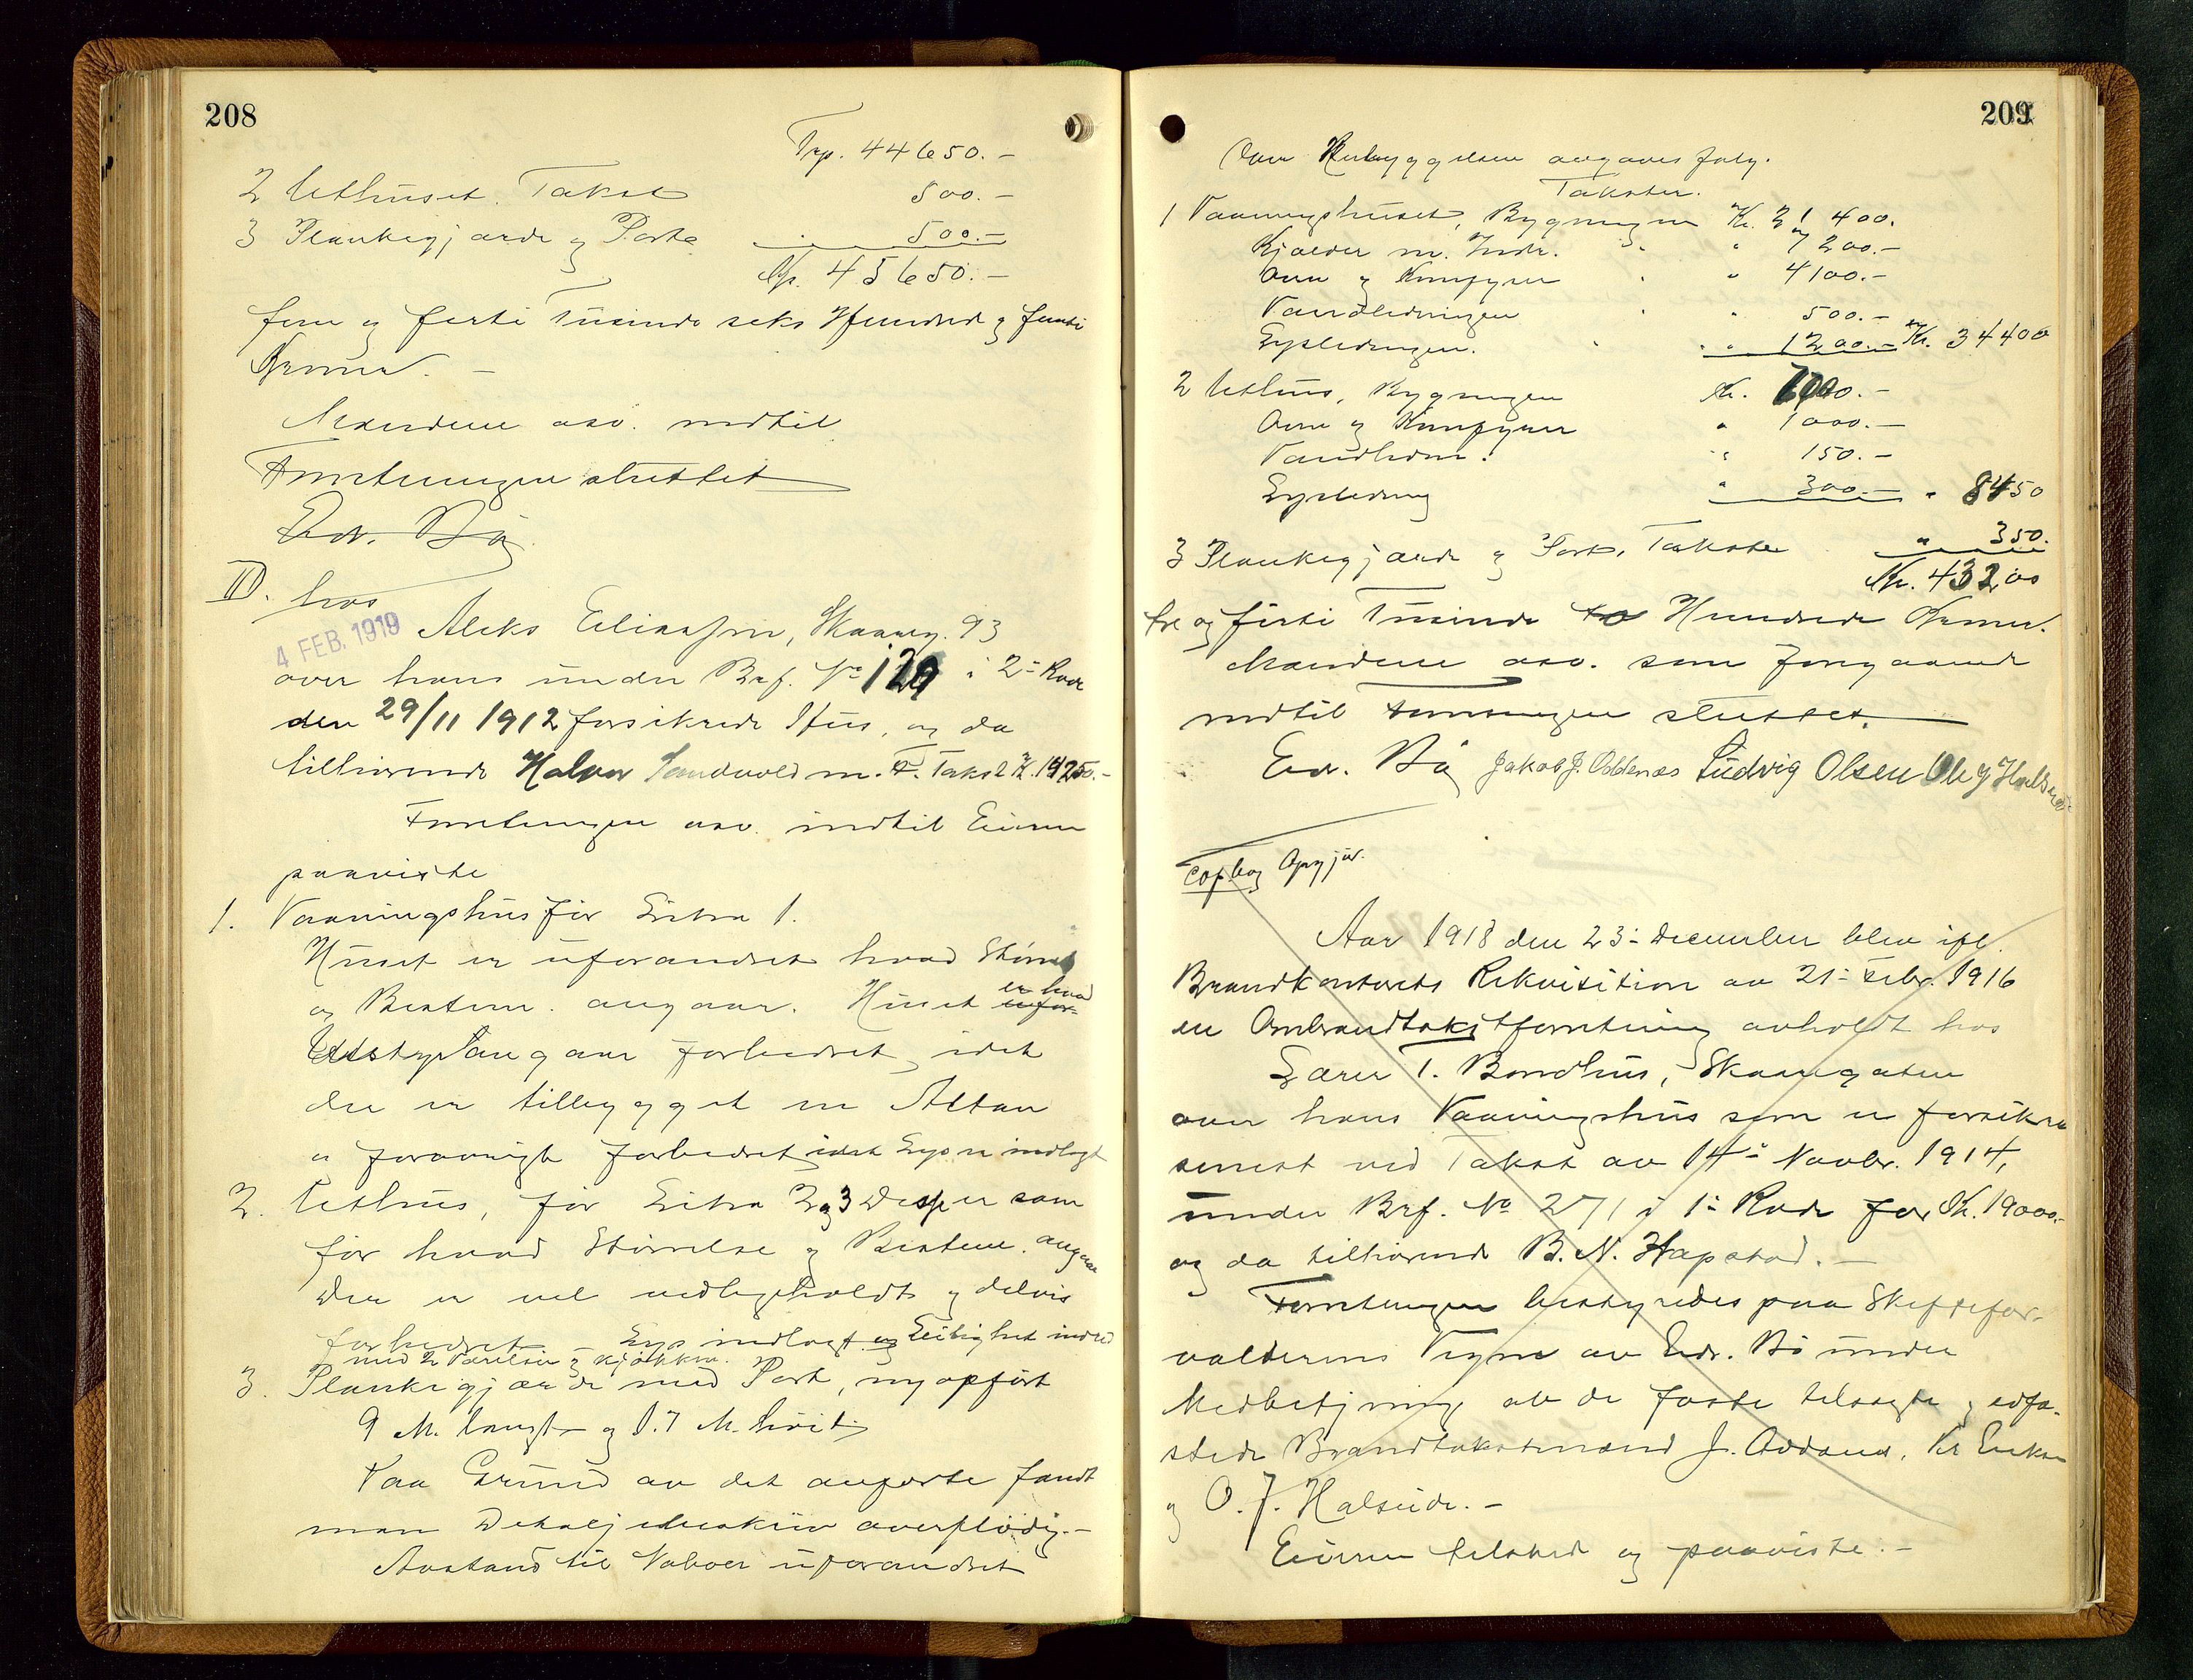 208
Trp. 44650.-
2 Uthuset. Takst 500.-
3 Plankegjærde og Port 500.-
Kr. 45650.-
fem og førti Tusinde seks Hundred og femti
Kroner. -
Mændene osv. indtil
Forretningen sluttet
Edv. Bø
II. hos
4 FEB. 1919
Aleks Eliassen, Skaareg. 93
over hans under Brf. No 129 i 2- Rode
den 29/11 1912 forsikrede Hus, og da
tilhørende Halvor Sandvold m. Takst K. 19250.-
Forretningen osv. indtil Eieren
paaviste
1. Vaaningshus før Litra 1.
Huset er uforandret hvad Størrelse
og Beskem. angaar. Huset er hvad
Utstyr angaar forbedret, idet
der er tilbygget en Altan
er forøvrigt forbedret idet Lys er indlagt
2. Uthus, før Litra 2 og 3 Disse er som
før hvad Størrelse og Bestem. angaar
Der er vel vedligeholdt og delvis
forbedret Lys indlagt og Leilighet indred
med 2 Værelser og kjøkken.
3. Plankegjærde med Port, ny opført
9 M. langt og 1.7 M. høit
Paa Grund av det anførte fandt
man Detaljebeskriv overflødig.-
Avstand til Naboer uforandret
209
Om Husbyggelsen avgaves følg.
Takster.
1 Vaaningshuset, Bygningen Kr. 21 400.
Kjælder m. Indr. " " 7 200.-
Ovne og Komfyrer " " 4100.-
Vandledningen " " 500.-
Lysledningen. " " 1200.- Kr. 34400
2 Uthus, Bygningen Kr. 7000.-
Ovne og Komfyrer " 1000.-
Vandledn. " 150.-
Lysledning " 300.- " 8450
3 Plankegjærde og Port, Takster " 350.
Kr. 43200
tre og førti Tusinde to Hundrede Kroner.
Mændene osv. som foregaaende
indtil Forretningen sluttet.
Edv. Bø Jakob J. Oddenes Ludvig Olsen Ole J Halseide
Cop bog Opgjør.
Aar 1918 den 23- December blev ifl.
Brandkontorets Rekvisition av 21- Febr. 1916
en Ombrandtakstforretning avholdt hos
Lærer T. Bondhus, Skaaregaten
over hans Vaaningshus som er forsikret
senest ved Takst av 14- Novbr. 1914,
under Brf. No 271 i 1- Rode for Kr. 19000.-
og da tilhørende B. N. Hapstad. -
Forretningen bestyredes paa Skiftefor-
valterens Vegne av Edv. Bø under
Medbetjening av de faste tilsagte og edfæ-
stede Brandtakstmænd J. Oddenes, Kr Eriksen
og O. J. Halseide. -
Eieren tilstede og paaviste. -